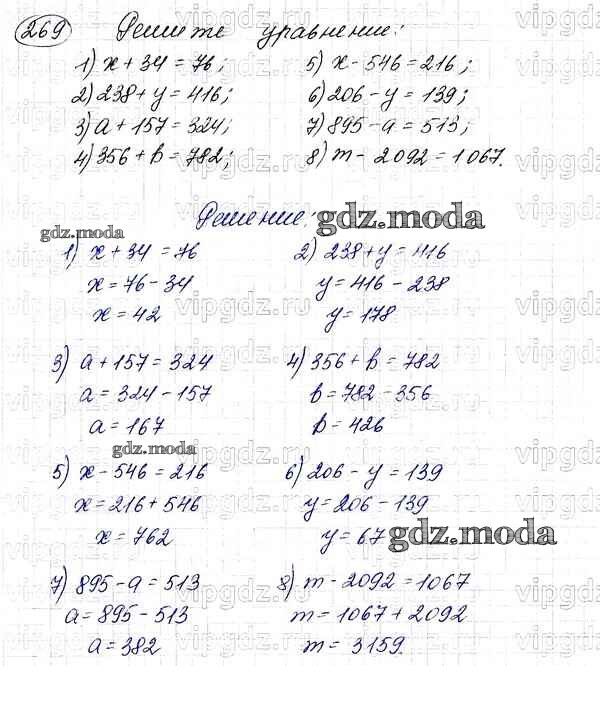 269 Решите уравнение:
1) x + 34 = 76; 5) x - 546 = 216;
2) 238 + y = 416; 6) 206 - y = 139;
3) a + 157 = 324; 7) 895 - a = 513;
4) 356 + b = 782; 8) m - 2092 = 1067.
Решение:
gdz.moda
gdz.moda
1) x + 34 = 76 2) 238 + y = 416
x = 76 - 34 y = 416 - 238
x = 42 y = 178
3) a + 157 = 324 4) 356 + b = 782
a = 324 - 157 b = 782 - 356
a = 167 b = 426
gdz.moda
5) x - 546 = 216 6) 206 - y = 139
x = 216 + 546 y = 206 - 139
x = 762 y = 67
gdz.moda
7) 895 - a = 513 8) m - 2092 = 1067
a = 895 - 513 m = 1067 + 2092
a = 382 m = 3159.
vipgdz.ru